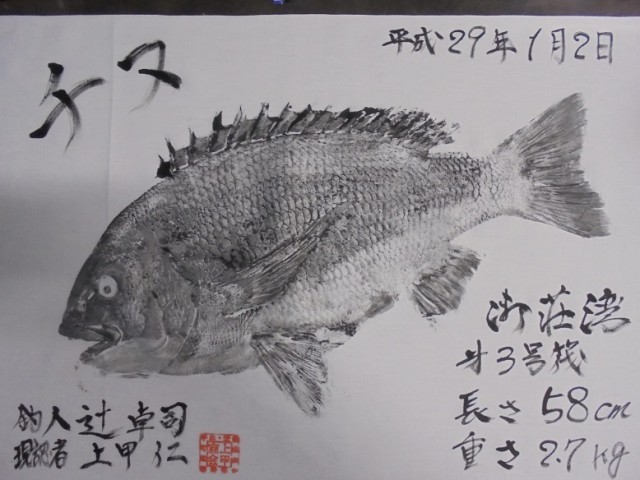 平成29年1月2日
チヌ
御荘湾
才3号筏
長さ58cm
重さ2.7kg
釣人 辻 卓司
現認者 上甲 仁